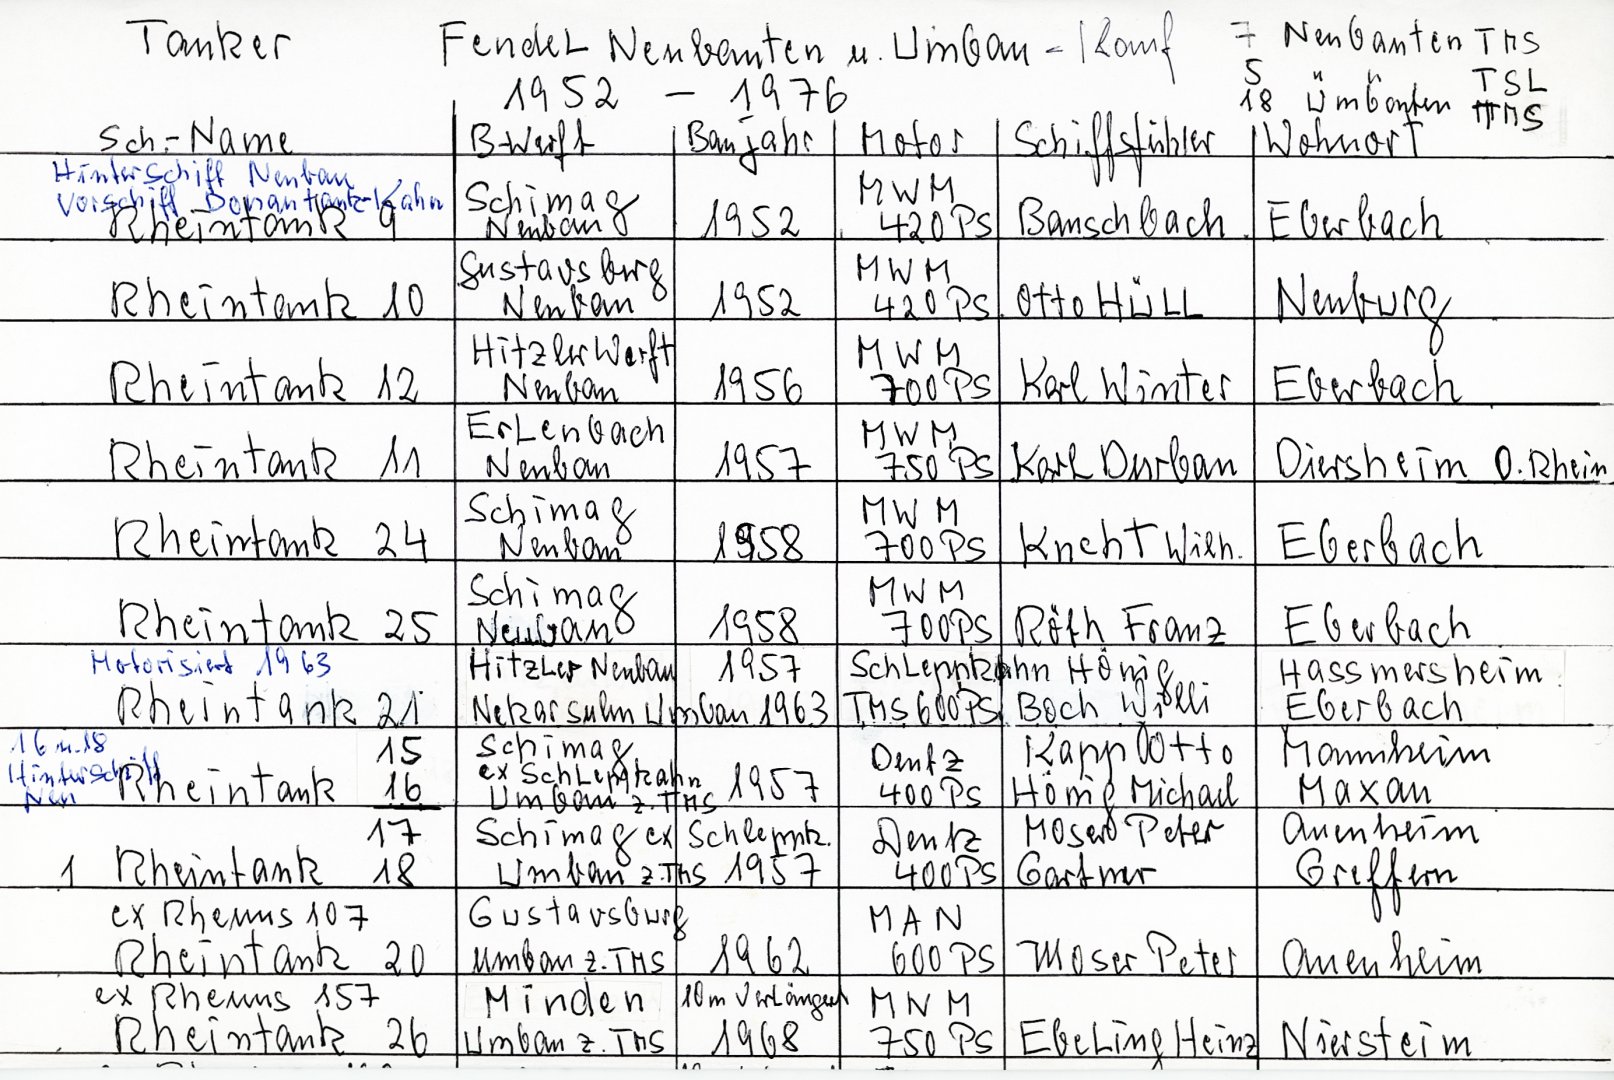 Tanker Fendel Neubauten u. Umbau - Kauf 7 Neubauten TMS
1952 - 1976 5 TSL
18 Umbauten TMS
Sch.-Name B-Werft Baujahr Motor Schiffsführer Wohnort
Hinterschiff Neubau
Vorschiff Donautank-Kahn Schimag MWM
Rheintank 9 Neubau 1952 420 PS Bauschbach Eberbach
Gustavsburg MWM
Rheintank 10 Neubau 1952 420 PS Otto Hüll Neuburg
Hitzler Werft MWM
Rheintank 12 Neubau 1956 700 PS Karl Winter Eberbach
Erlenbach MWM
Rheintank 11 Neubau 1957 750 PS Karl Durban Diersheim O.Rhein
Schimag MWM
Rheintank 24 Neubau 1958 700 PS Knecht Wilh. Eberbach
Schimag MWM
Rheintank 25 Neubau 1958 700 PS Röth Franz Eberbach
Motorisiert 1963 Hitzler Neubau 1957 Schleppkahn Hönig Hassmersheim
Rheintank 21 Nekarsulm Umbau 1963 TMS 600 PS Boch Willi Eberbach
16 u. 18 15 Schimag Deutz Kapp Otto Mannheim
Hinterschiff ex Schleppkahn
Neu Rheintank 16 Umbau z. TMS 1957 400 PS Hönig Michael Maxau
17 Schimag ex Schleppk. Deutz Moser Peter Auenheim
1 Rheintank 18 Umbau z. TMS 1957 400 PS Gartner Greffern
ex Rhenus 107 Gustavsburg MAN
Rheintank 20 Umbau z. TMS 1962 600 PS Moser Peter Auenheim
ex Rhenus 157 Minden 10m Verlängert MWM
Rheintank 26 Umbau z. TMS 1968 750 PS Ebeling Heinz Niersteim